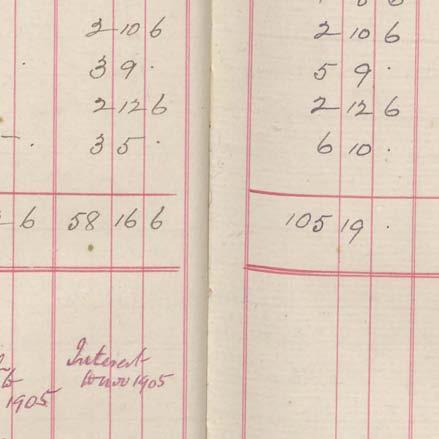 2 10 6
3 9 .
2 12 6
3 5 .
6 58 16 6
Interest
to nov 1905
1905
2 10 6
5 9 .
2 12 6
6 10 .
105 19 .